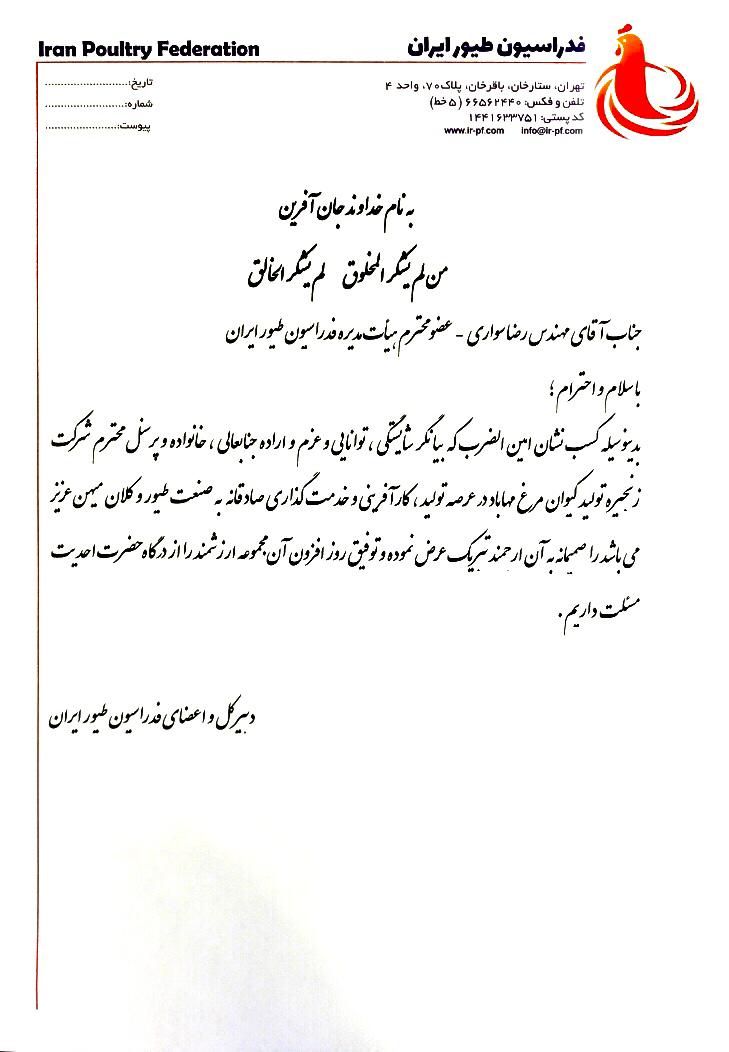 Iran Poultry Federation
فدراسیون طیور ایران
تهران، ستارخان، باقرخان، پلاک۷۰، واحد ۴
تلفن و فکس: ۶۶۵۶۲۴۴۰ (۵ خط)
کد پستی: ۱۴۴۱۶۳۳۷۵۱
www.ir-pf.com info@ir-pf.com
تاریخ:............................
شماره:..........................
پیوست:........................
به نام خداوند جان آفرین
من لم یشکر المخلوق لم یشکر الخالق
جناب آقای مهندس رضا سواری - عضو محترم هیأت مدیره فدراسیون طیور ایران
با سلام و احترام ؛
بدینوسیله کسب نشان امین الضرب که بیانگر شایستگی ، توانایی و عزم و اراده جنابعالی ، خانواده و پرسنل محترم شرکت
زنجیره تولید کیوان مرغ مهاباد در عرصه تولید ، کارآفرینی و خدمت گذاری صادقانه به صنعت طیور و کلان میهن عزیز
می باشد را صمیمانه به آن ارجمند تبریک عرض نموده و توفیق روز افزون آن مجموعه ارزشمند را از درگاه حضرت احدیت
مسئلت داریم .
دبیر کل و اعضای فدراسیون طیور ایران